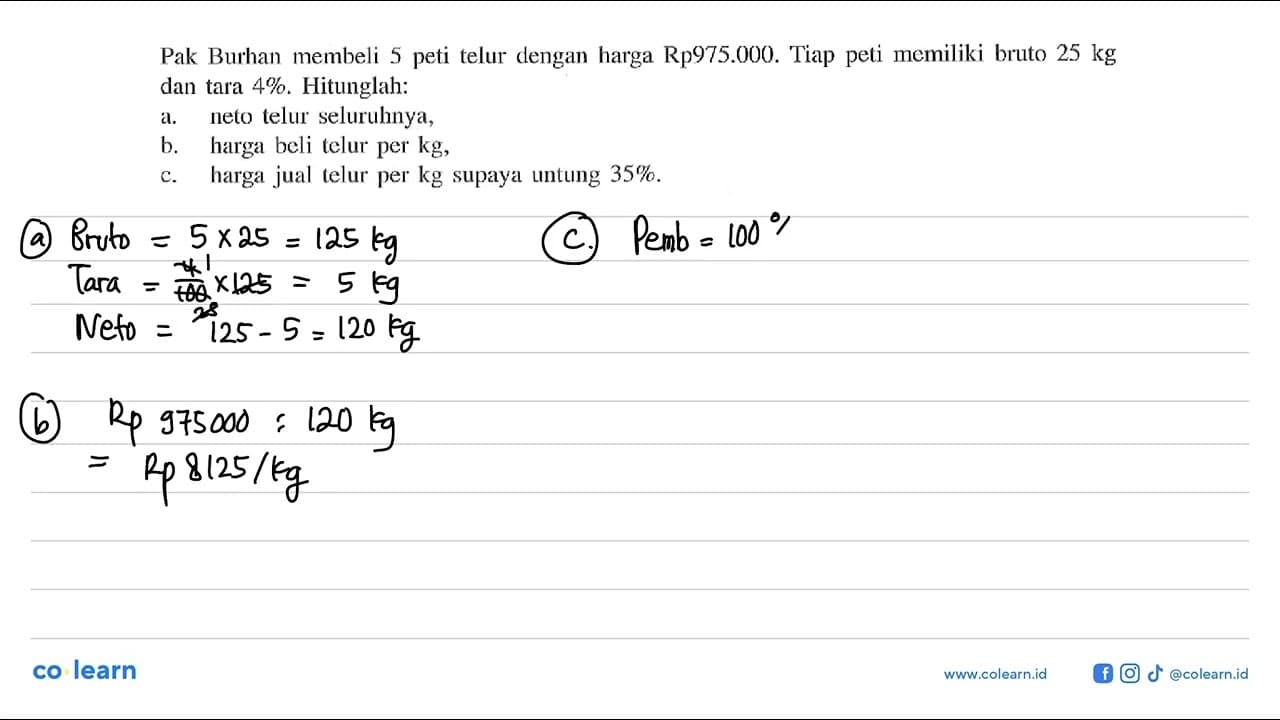 Pak Burhan membeli 5 peti telur dengan harga Rp975.000. Tiap peti memiliki bruto 25 kg
dan tara 4%. Hitunglah:
a. neto telur seluruhnya,
b. harga beli telur per kg,
c. harga jual telur per kg supaya untung 35%.
a Bruto = 5 × 25 = 125 kg
Tara = 4/100 × 125 = 5 kg
1
25
Neto = 125 - 5 = 120 kg
b Rp 975000 : 120 kg
= Rp 8125/kg
c. Pemb = 100%
co learn
www.colearn.id
@colearn.id